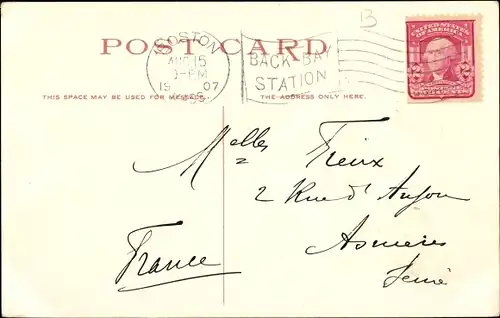 B
POST CARD
BOSTON
AUG 15
-PM
1907
MASS.
BACK BAY
STATION
UNITED STATES
OF AMERICA
2 2
THIS SPACE MAY BE USED FOR MESSAGE.
THE ADDRESS ONLY HERE.
Melles
2 Rue d'Anjou
Asnieres
Seine
France